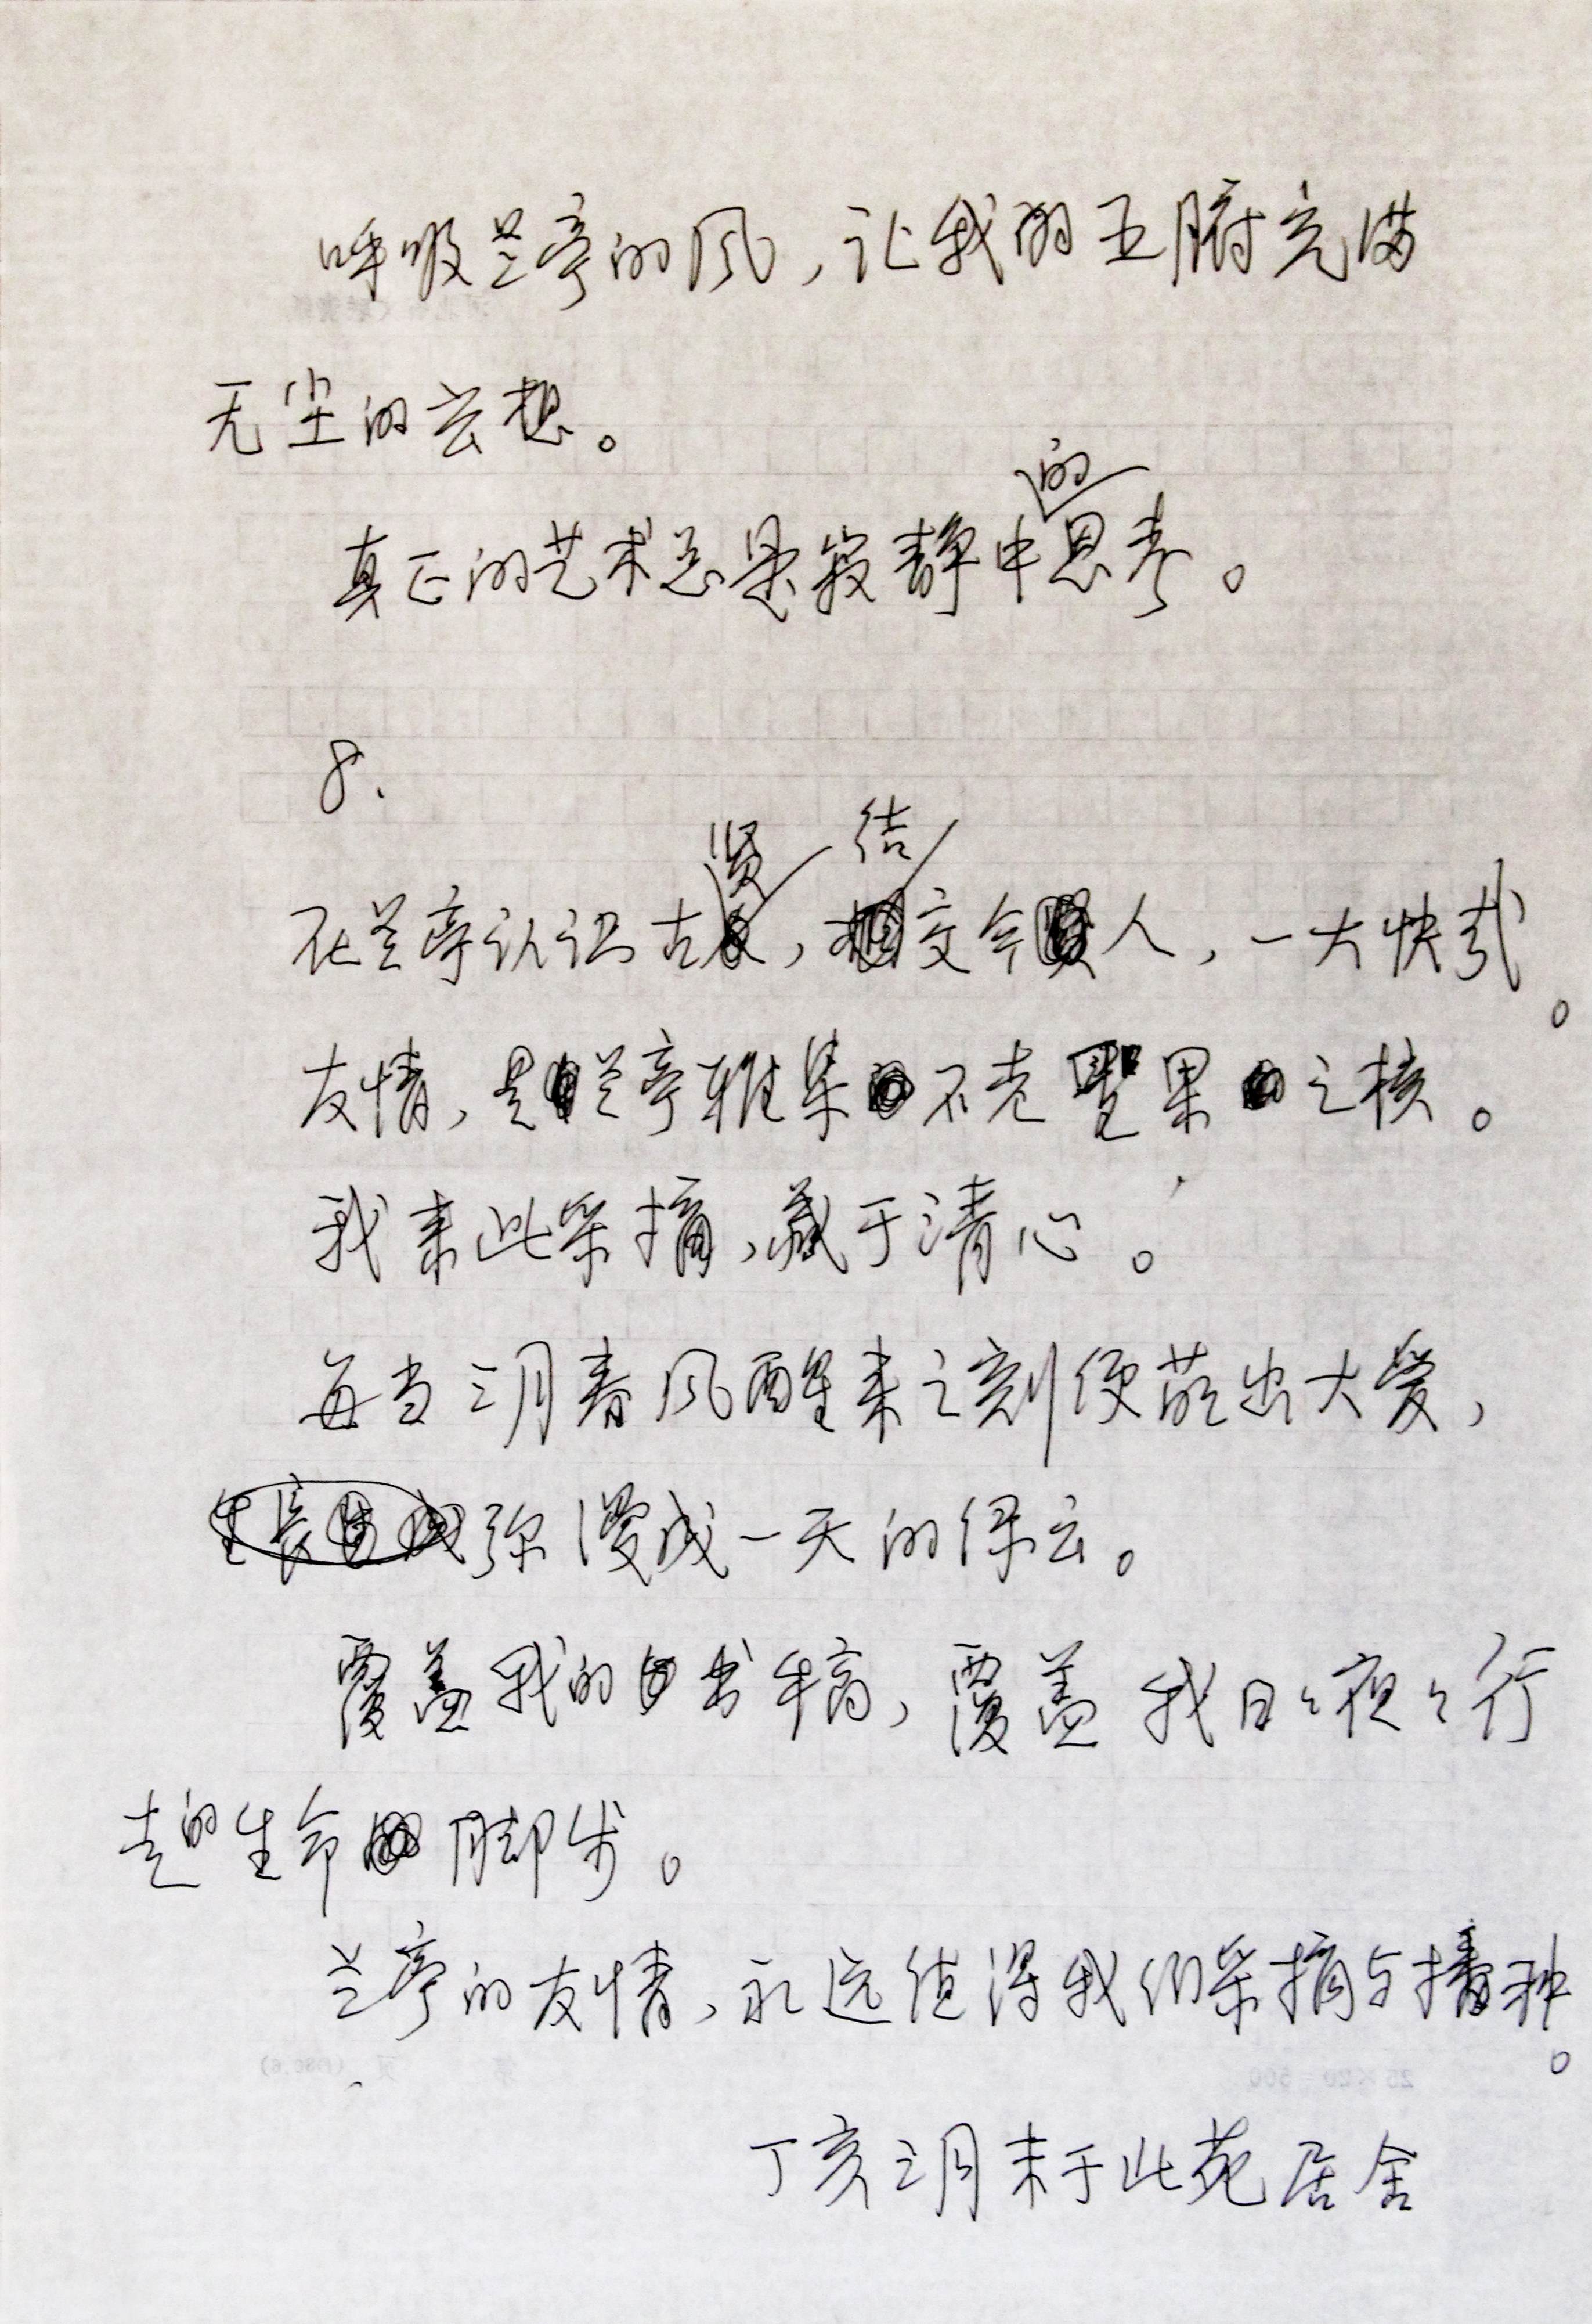 呼吸兰亭的风，让我的五腑充满
无尘的玄想。
真正的艺术总是寂静中的思考。
8.
在兰亭认识古贤，结交今人，一大快哉。
友情，是兰亭雅集不老圣果之核。
我来此采摘，藏于清心。
每当三月春风醒来之刻便萌出大爱，
弥漫成一天的绿云。
覆盖我的书稿，覆盖我日日夜夜行
走的生命脚步。
兰亭的友情，永远值得我们采摘与播种。
丁亥三月末于北苑居舍